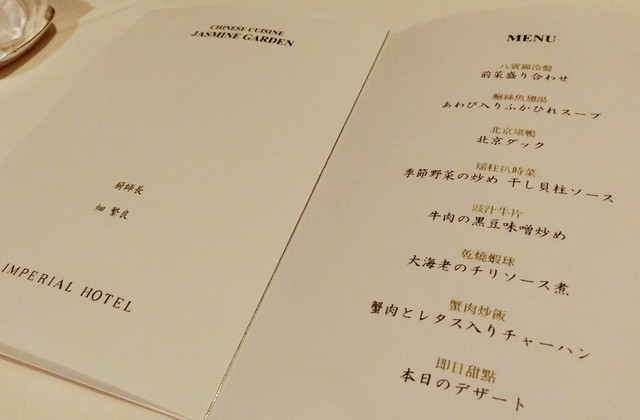 CHINESE CUISINE
JASMINE GARDEN
厨師長
畑 繁良
IMPERIAL HOTEL
MENU
八寳錦冷盤
前菜盛り合わせ
鮑絲魚翅湯
あわび入りふかひれスープ
北京填鴨
北京ダック
瑶柱扒時菜
季節野菜の炒め 干し貝柱ソース
豉汁牛片
牛肉の黒豆味噌炒め
乾燒蝦球
大海老のチリソース煮
蟹肉炒飯
蟹肉とレタス入りチャーハン
即日甜點
本日のデザート